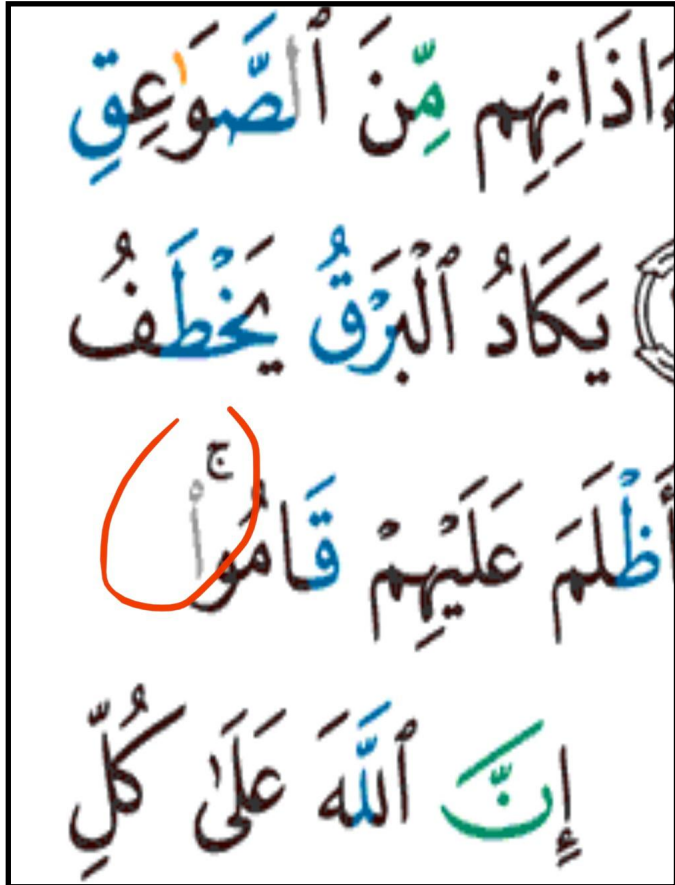 ءَاذَانِهِم مِّنَ ٱلصَّوَٰعِقِ
يَكَادُ ٱلْبَرْقُ يَخْطَفُ
أَظْلَمَ عَلَيْهِمْ قَامُوا۟ ۚ
إِنَّ ٱللَّهَ عَلَىٰ كُلِّ